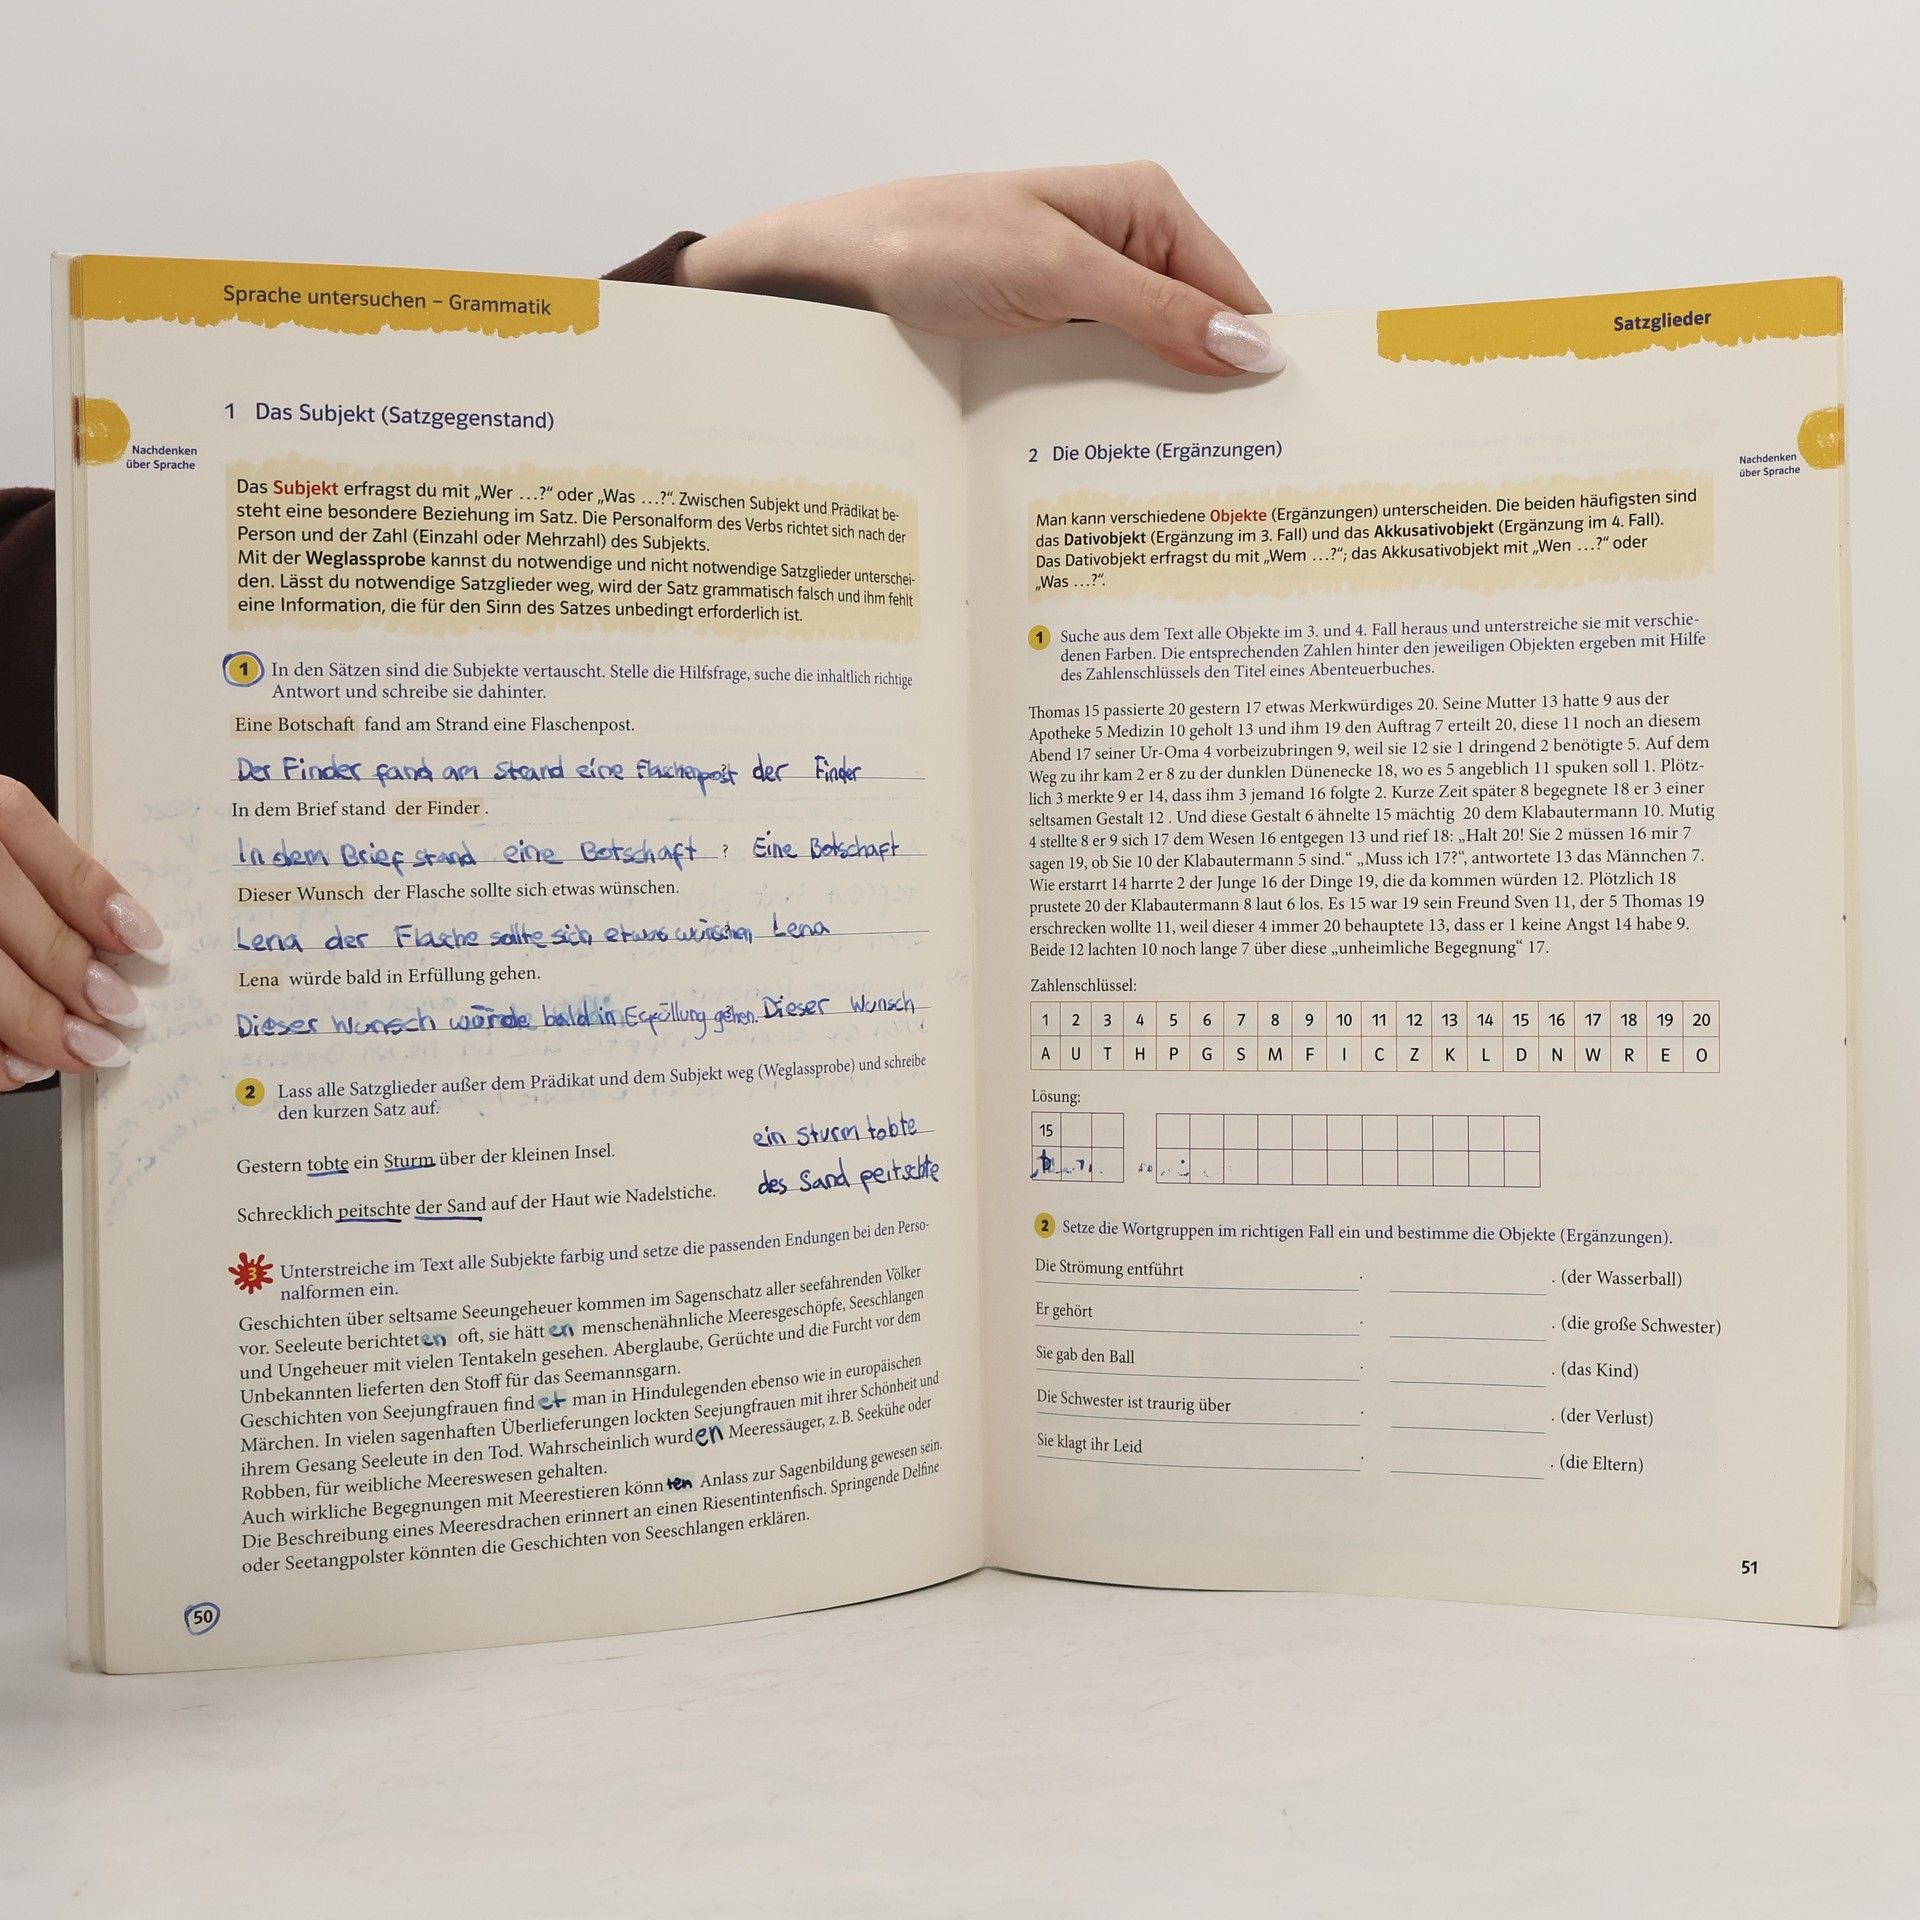 Sprache untersuchen – Grammatik
1 Das Subjekt (Satzgegenstand)
Nachdenken
über Sprache
Das Subjekt erfragst du mit „Wer …?“ oder „Was …?“. Zwischen Subjekt und Prädikat be-
steht eine besondere Beziehung im Satz. Die Personalform des Verbs richtet sich nach der
Person und der Zahl (Einzahl oder Mehrzahl) des Subjekts.
Mit der Weglassprobe kannst du notwendige und nicht notwendige Satzglieder unterschei-
den. Lässt du notwendige Satzglieder weg, wird der Satz grammatisch falsch und ihm fehlt
eine Information, die für den Sinn des Satzes unbedingt erforderlich ist.
1 In den Sätzen sind die Subjekte vertauscht. Stelle die Hilfsfrage, suche die inhaltlich richtige
Antwort und schreibe sie dahinter.
Eine Botschaft fand am Strand eine Flaschenpost.
Der Finder fand am Strand eine Flaschenpost der Finder
In dem Brief stand der Finder.
In dem Brief stand eine Botschaft ? Eine Botschaft
Dieser Wunsch der Flasche sollte sich etwas wünschen.
Lena der Flasche sollte sich etwas wünschen, Lena
Lena würde bald in Erfüllung gehen.
Dieser Wunsch würde bald in Erfüllung gehen. Dieser Wunsch
2 Lass alle Satzglieder außer dem Prädikat und dem Subjekt weg (Weglassprobe) und schreibe
den kurzen Satz auf.
Gestern tobte ein Sturm über der kleinen Insel. ein Sturm tobte
Schrecklich peitschte der Sand auf der Haut wie Nadelstiche. des Sand peitschte
3 Unterstreiche im Text alle Subjekte farbig und setze die passenden Endungen bei den Perso-
nalformen ein.
Geschichten über seltsame Seeungeheuer kommen im Sagenschatz aller seefahrenden Völker
vor. Seeleute berichteten oft, sie hätten menschenähnliche Meeresgeschöpfe, Seeschlangen
und Ungeheuer mit vielen Tentakeln gesehen. Aberglaube, Gerüchte und die Furcht vor dem
Unbekannten lieferten den Stoff für das Seemannsgarn.
Geschichten von Seejungfrauen findet man in Hindulegenden ebenso wie in europäischen
Märchen. In vielen sagenhaften Überlieferungen lockten Seejungfrauen mit ihrer Schönheit und
ihrem Gesang Seeleute in den Tod. Wahrscheinlich wurden Meeressäuger, z. B. Seekühe oder
Robben, für weibliche Meereswesen gehalten.
Auch wirkliche Begegnungen mit Meerestieren könnten Anlass zur Sagenbildung gewesen sein.
Die Beschreibung eines Meeresdrachen erinnert an einen Riesentintenfisch. Springende Delfine
oder Seetangpolster könnten die Geschichten von Seeschlangen erklären.
50
Satzglieder
2 Die Objekte (Ergänzungen)
Nachdenken
über Sprache
Man kann verschiedene Objekte (Ergänzungen) unterscheiden. Die beiden häufigsten sind
das Dativobjekt (Ergänzung im 3. Fall) und das Akkusativobjekt (Ergänzung im 4. Fall).
Das Dativobjekt erfragst du mit „Wem …?“; das Akkusativobjekt mit „Wen …?“ oder
„Was …?“.
1 Suche aus dem Text alle Objekte im 3. und 4. Fall heraus und unterstreiche sie mit verschie-
denen Farben. Die entsprechenden Zahlen hinter den jeweiligen Objekten ergeben mit Hilfe
des Zahlenschlüssels den Titel eines Abenteuerbuches.
Thomas 15 passierte 20 gestern 17 etwas Merkwürdiges 20. Seine Mutter 13 hatte 9 aus der
Apotheke 5 Medizin 10 geholt 13 und ihm 19 den Auftrag 7 erteilt 20, diese 11 noch an diesem
Abend 17 seiner Ur-Oma 4 vorbeizubringen 9, weil sie 12 sie 1 dringend 2 benötigte 5. Auf dem
Weg zu ihr kam 2 er 8 zu der dunklen Dünenecke 18, wo es 5 angeblich 11 spuken soll 1. Plötz-
lich 3 merkte 9 er 14, dass ihm 3 jemand 16 folgte 2. Kurze Zeit später 8 begegnete 18 er 3 einer
seltsamen Gestalt 12 . Und diese Gestalt 6 ähnelte 15 mächtig 20 dem Klabautermann 10. Mutig
4 stellte 8 er 9 sich 17 dem Wesen 16 entgegen 13 und rief 18: „Halt 20! Sie 2 müssen 16 mir 7
sagen 19, ob Sie 10 der Klabautermann 5 sind.“ „Muss ich 17?“, antwortete 13 das Männchen 7.
Wie erstarrt 14 harrte 2 der Junge 16 der Dinge 19, die da kommen würden 12. Plötzlich 18
prustete 20 der Klabautermann 8 laut 6 los. Es 15 war 19 sein Freund Sven 11, der 5 Thomas 19
erschrecken wollte 11, weil dieser 4 immer 20 behauptete 13, dass er 1 keine Angst 14 habe 9.
Beide 12 lachten 10 noch lange 7 über diese „unheimliche Begegnung“ 17.
Zahlenschlüssel:
1 2 3 4 5 6 7 8 9 10 11 12 13 14 15 16 17 18 19 20
A U T H P G S M F I C Z K L D N W R E O
Lösung:
15
2 Setze die Wortgruppen im richtigen Fall ein und bestimme die Objekte (Ergänzungen).
Die Strömung entführt . . (der Wasserball)
Er gehört . . (die große Schwester)
Sie gab den Ball . . (das Kind)
Die Schwester ist traurig über . . (der Verlust)
Sie klagt ihr Leid . . (die Eltern)
51